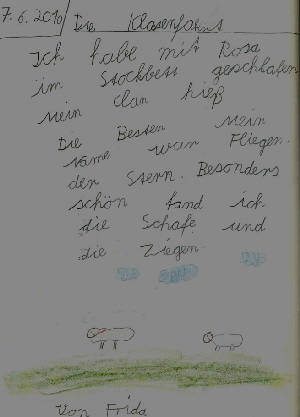 7.6.2010 Die Klasenfahrt
Ich habe mit Rosa
im Stockbett geschlafen
mein clan hieß
Die Besten Mein
name war Fliegen-
der Stern. Besonders
schön fand ich
die Schafe und
die Ziegen.
Von Frida